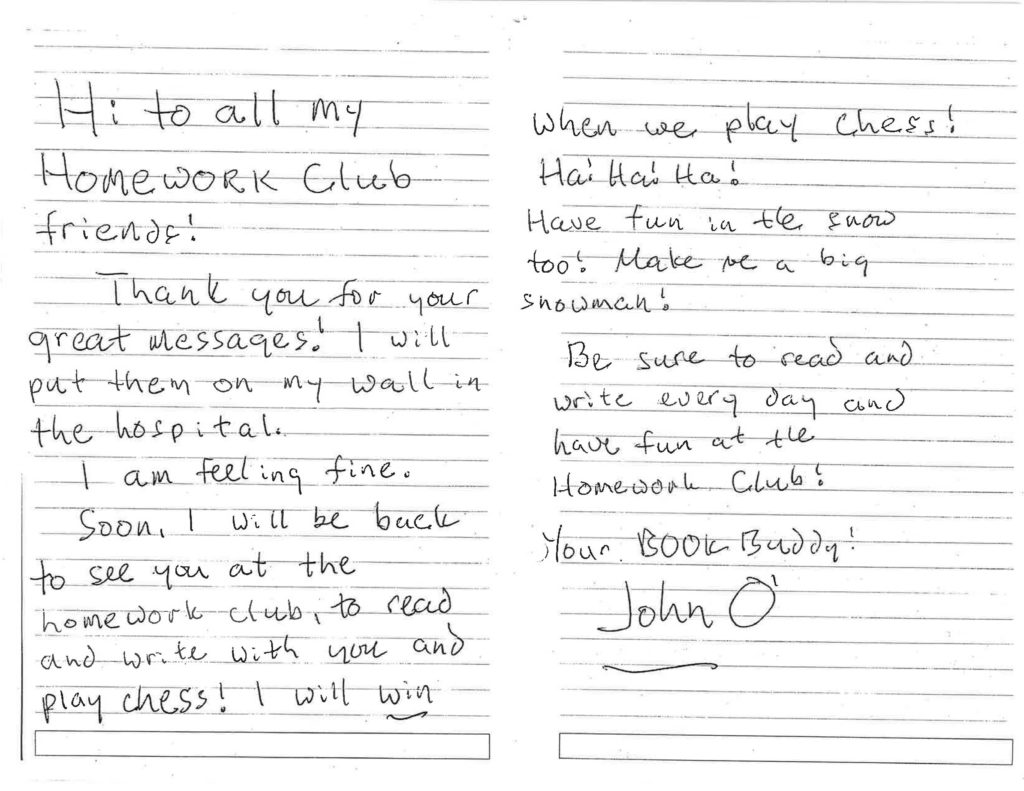 Hi to all my
Homework Club
friends!
Thank you for your
great messages! I will
put them on my wall in
the hospital.
I am feeling fine.
Soon, I will be back
to see you at the
homework club, to read
and write with you and
play chess! I will win
When we play chess!
Ha! Ha! Ha!
Have fun in the snow
too! Make me a big
snowman!
Be sure to read and
write every day and
have fun at the
Homework Club!
Your BOOK Buddy!
John O'